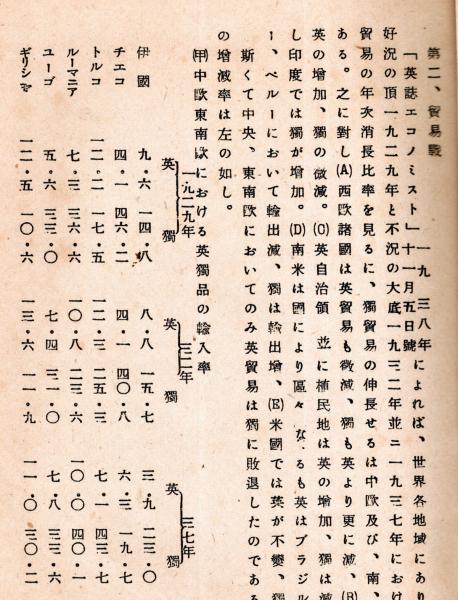 第二、貿易戰
「英誌エコノミスト」一九三八年十一月五日號によれば、世界各地域にあり
好況の頂一九二九年と不況の大底一九三二年並ニ一九三七年におけ
貿易の年次消長比率を見るに、獨貿易の伸長せるは中歐及び、南、
ある。之に對し(A)西歐諸國は英貿易も微減、獨も英より更に減、(B)
英の增加、獨の微減。(C)英自治領 並に植民地は英の增加、獨は減
し印度では獨が增加。(D)南米は國により區々なるも英はブラジル
ー、ペルーにおいて輸出減、獨は輸出增、(E)米國では英が不變、獨
斯くて中央、東南歐においてのみ英貿易は獨に敗退したのである
の增減率は左の如し。
(甲)中歐東南歐における英獨品の輸入率
一九二九年 三二年 三七年
英 獨 英 獨 英 獨
伊國 九・六 一四・八 八・八 一五・七 三・九 二三・〇
チエコ 四・一 四六・二 四・一 四〇・八 六・三 一九・七
トルコ 一二・二 一七・五 一二・三 二五・三 七・一 四三・一
ルーマニア 七・三 三六・六 一〇・八 二三・六 一〇・〇 四〇・一
ユーゴ 五・六 三三・〇 七・四 三一・〇 七・八 三三・六
ギリシヤ 一二・五 一〇・六 一三・六 一一・九 一一・〇 三〇・二